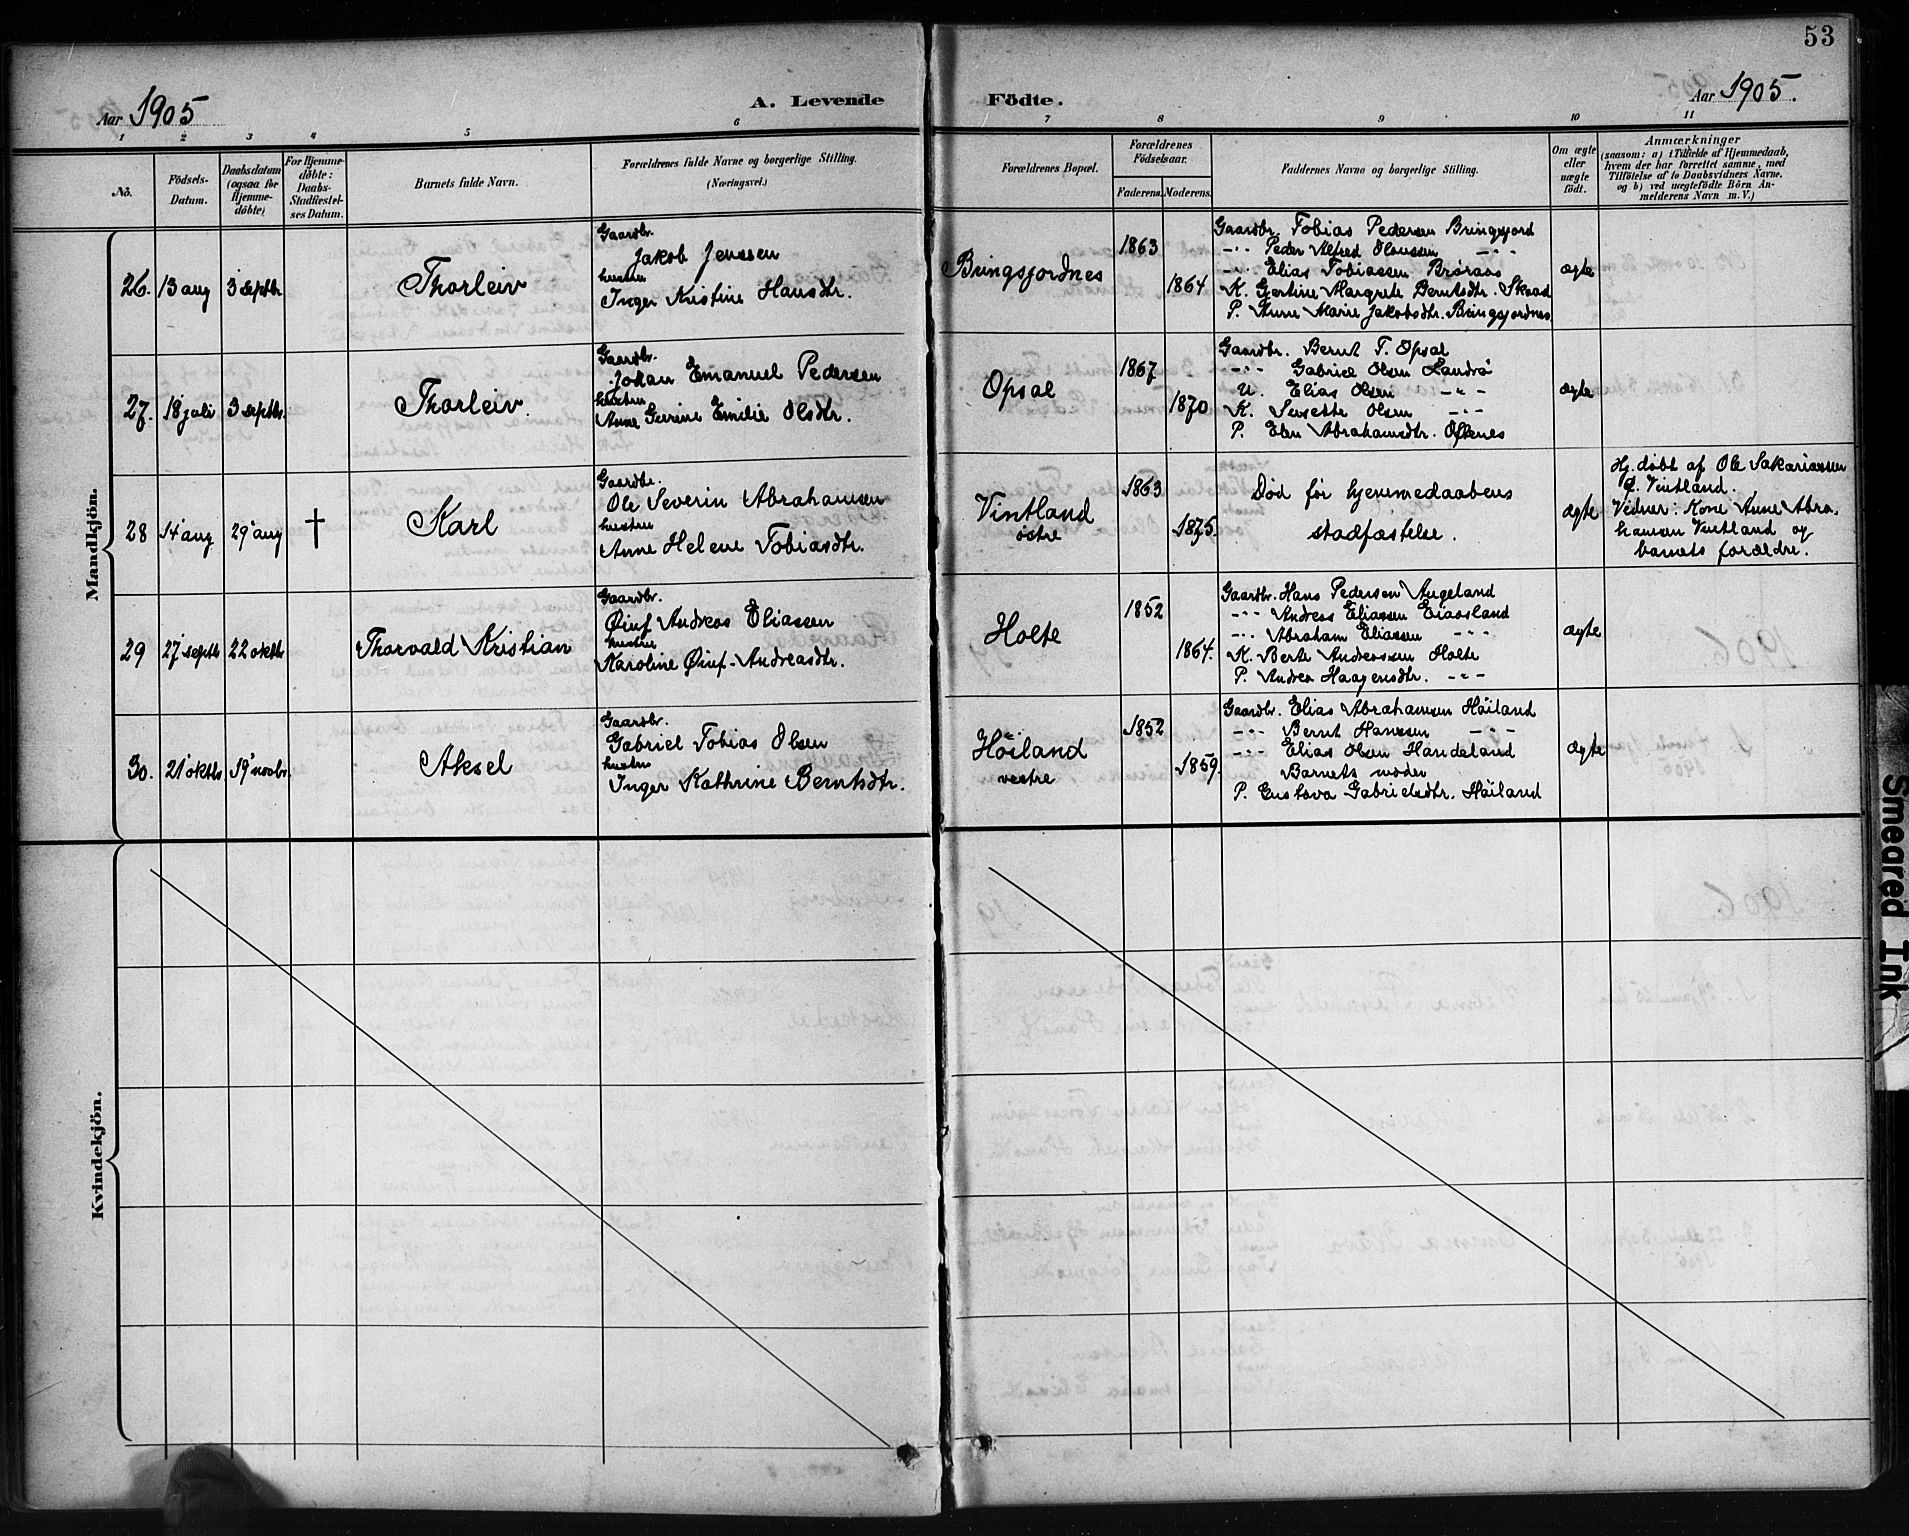 53
Aar 1905
A. Levende Födte.
Aar 1905.
1 2 3 4 5 6 7 8 9 10 11
No.
Födsels-
Datum.
Daabsdatum
(ogsaa for
Hjemme-
döbte)
For Hjemme-
döbte:
Daabs-
Stadfæstel-
ses Datum.
Barnets fulde Navn.
Forældrenes fulde Navne og borgerlige Stilling.
(Næringsvei.)
Forældrenes Bopæl.
Forældrenes
Födselsaar.
Faderens. Moderens.
Faddernes Navne og borgerlige Stilling.
Om ægte
eller
uægte
födt.
Anmærkninger
(saasom: a) i Tilfælde af Hjemmedaab,
hvem der har forrettet samme, med
Tilföielse af to Daabsvidners Navne.
og b) ved uægtefödte Börn An-
melderens Navn m. V.)
Mandkjön.
26. 13 aug 3 septbr. Thorleiv
Gaardbr.
Jakob Jenssen
hustru
Inger Kristine Hansdtr.
Bringsjordnes
1863
1864
Gaardbr. Tobias Pedersen Bringsjord
-"- Peder Alfred Olaussen -"-
-"- Elias Tobiassen Brøraas
K. Gertine Margrete Berntsdtr. Skaad
P. Anne Marie Jakobsdtr. Bringsjordnes
ægte
27. 18 juli 3 septbr. Thorleiv.
Gaardbr.
Johan Emanuel Pedersen
hustru
Anne Gurine Emilie Olsdtr.
Opsal
1867
1870
Gaardbr. Bernt T. Opsal
-"- Gabriel Olsen Landrø
U. Elias Olsen -"-
K. Sersette Olsen -"-
P. Elen Abrahamsdtr. Øksnes
ægte
28 14 aug 29 aug † Karl
Gaardbr.
Ole Severin Abrahamsen
hustru
Anne Helene Tobiasdtr.
Vintland
østre
1863
1875.
Død før hjemmedaabens
stadfæstelse.
ægte
Hj. døbt af Ole Sakariassen
Ø. Vintland.
Vidner: Kone Anne Abra-
hamsen Vintland og
barnets forældre.
29 27 septb 22 oktbr Thorvald Kristian
Gaardbr.
Øiuf Andreas Eliassen
hustru
Karoline Øiuf-Andreasdtr.
Holte
1852
1864.
Gaardbr. Hans Pedersen Augeland
-"- Andreas Eliassen Eiaasland
-"- Abraham Eliassen -"-
K. Berte Andreassen Holte
P. Andrea Haagensdtr. -"-
ægte
30. 21 oktbr 19 novbr. Aksel
Gaardbr.
Gabriel Tobias Olsen
hustru
Inger Kathrine Berntsdtr.
Høiland
vestre
1852
1859.
Gaardbr. Elias Abrahamsen Høiland
-"- Bernt Hanssen -"-
-"- Elias Olsen Handeland
Barnets moder
P. Gustava Gabrielsdtr. Høiland
ægte
Kvindekjön.
Smeared Ink